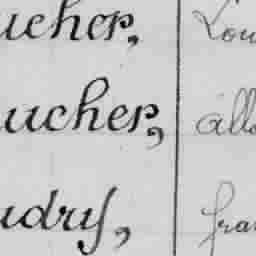 ucher, Lou
ucher, allo
udry, fra